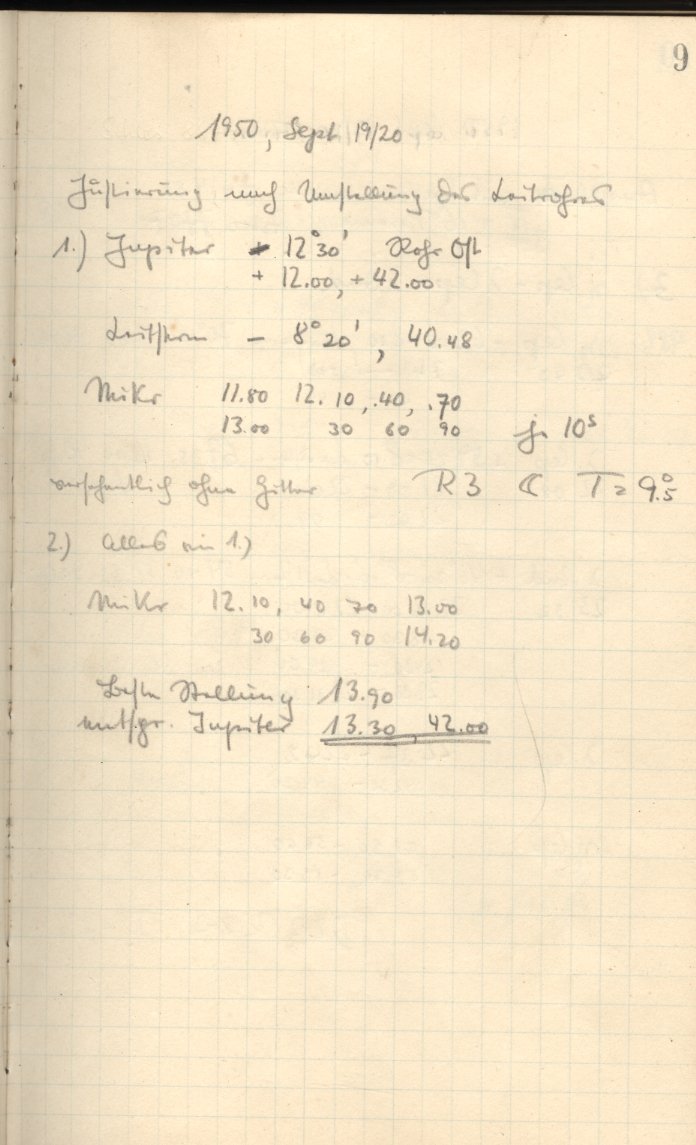 9
1950, Sept 19/20
Justierung nach Umstellung des Leitrohres
1.) Jupiter - 12° 30' Rohr Ost
+ 12.00, + 42.00
Leitstern - 8° 20', 40.48
Mikr 11.80 12.10, .40, .70
13.00 30 60 90 je 10s
versehentlich ohne Gitter R3 ☾ T = 9°.5
2.) Alles wie 1.)
Mikr 12.10, 40 70 13.00
30 60 90 14.20
Beste Stellung 13.90
entspr. Jupiter 13.30, 42.00